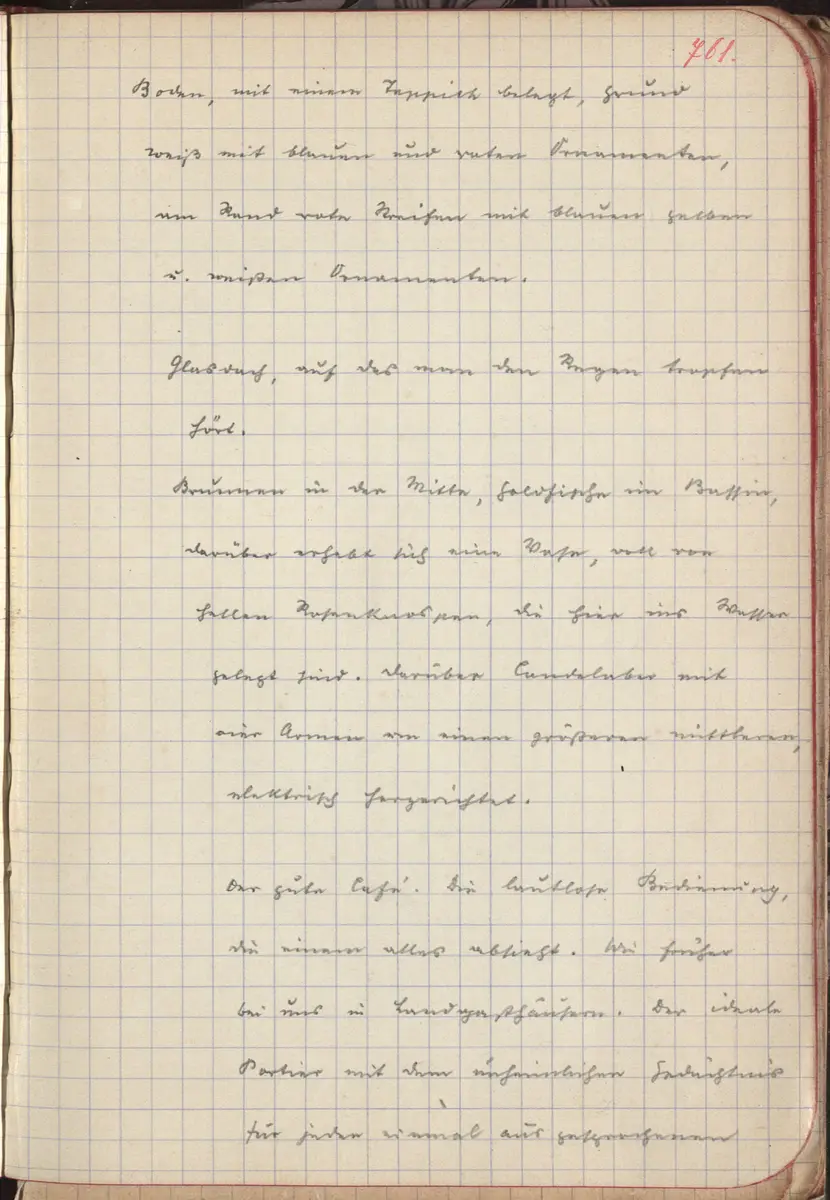 761.
Boden, mit einem Teppich belegt, Grund
weiß mit blauen und roten Ornamenten,
am Rand rote Streifen mit blauen gelben
u. weißen Ornamenten.
Glasdach, auf das man den Regen tropfen
hört.
Brunnen in der Mitte, Goldfische im Bassin,
darüber erhebt sich eine Vase, voll von
hellen Rosenknospen, die hier ins Wasser
gelegt sind. Darüber Candelaber mit
vier Armen um einen größeren mittleren,
elektrisch hergerichtet.
Der gute Café. Die lautlose Bedienung,
die einem alles absieht. Wie früher
bei uns in Landgasthäusern. Der ideale
Portier mit dem unheimlichen Gedächtnis
für jeden einmal ausgesprochenen